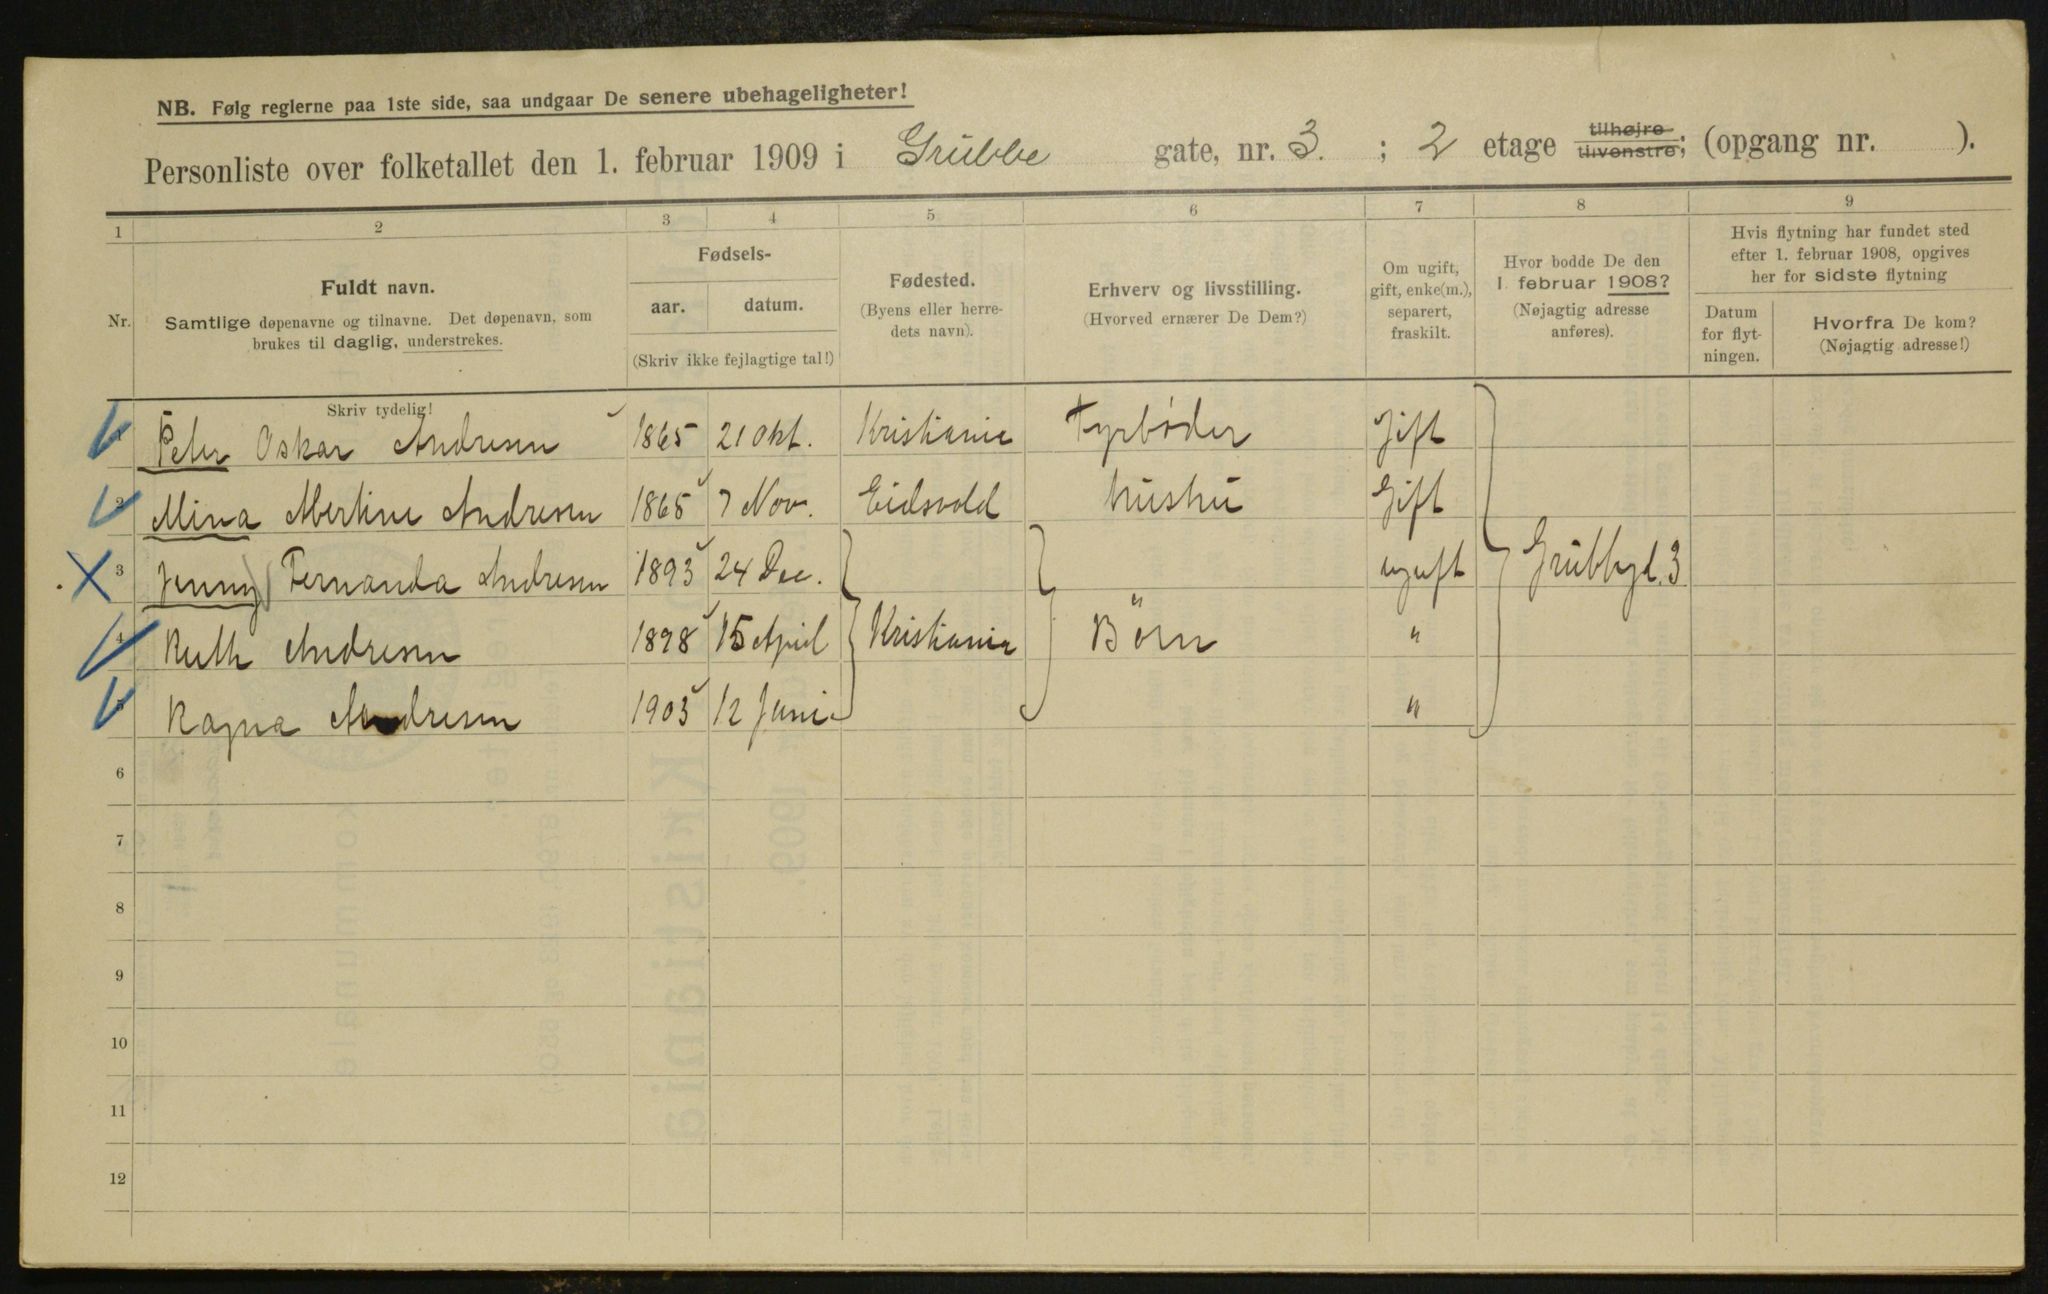 NB. Følg reglerne paa 1ste side, saa undgaar De senere ubehageligheter!
Personliste over folketallet den 1. februar 1909 i Grubbe gate, nr. 3. ; 2 etage tilhøjre tilvenstre; (opgang nr. ).
1 2 3 4 5 6 7 8 9
Nr.
Fuldt navn.
Samtlige døpenavne og tilnavne. Det døpenavn, som
brukes til daglig, understrekes.
Skriv tydelig!
Fødsels-
aar. datum.
(Skriv ikke fejlagtige tal!)
Fødested.
(Byens eller herre-
dets navn).
Erhverv og livsstilling.
(Hvorved ernærer De Dem?)
Om ugift,
gift, enke(m.),
separert,
fraskilt.
Hvor bodde De den
1. februar 1908?
(Nøjagtig adresse
anføres).
Hvis flytning har fundet sted
efter 1. februar 1908, opgives
her for sidste flytning
Datum
for flyt-
ningen.
Hvorfra De kom?
(Nøjagtig adresse!)
1 Peter Oskar Andresen 1865 21 Okt. Kristiania Fyrbøder Gift
2 Mina Albertine Andresen 1865 7 Nov. Eidsvold Hustru Gift
3 Jenny Fernanda Andresen 1893 24 Dec. ugift Grubbegd. 3
4 Ruth Andresen 1898 15 April Kristiania Börn "
5 Ragna Andresen 1903 12 Juni "
6
7
8
9
10
11
12